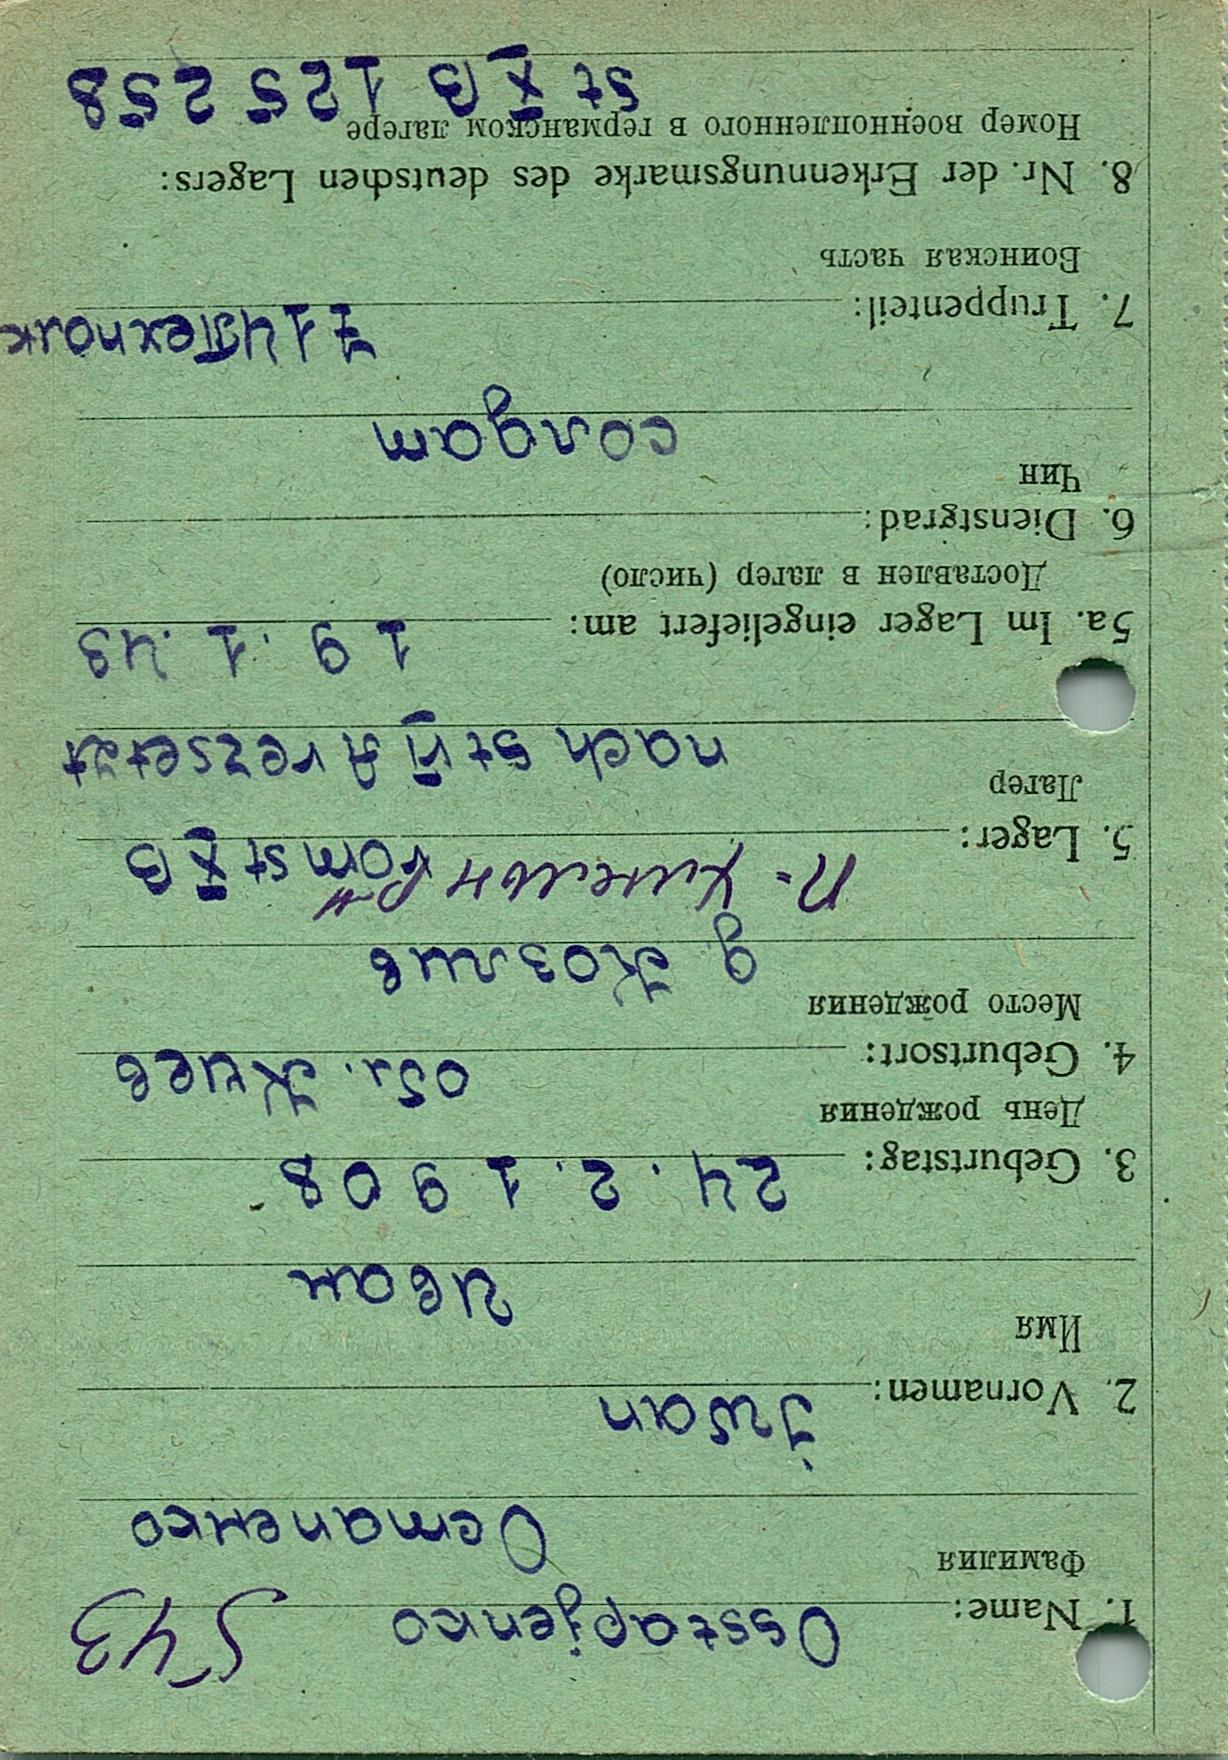 543
1. Name: Osstapjenko
Фамилия
Остапенко
2. Vornamen: Iwan
Имя
Иван
3. Geburtstag: 24. 2. 1908
День рождения
4. Geburtsort: обл. Киев
Место рождения
д. Козлив
5. Lager: vom St X B
Лагер
nach St VI A versetzt
5a. Im Lager eingeliefert am: 19. 1. 43
Доставлен в лагер (число)
6. Dienstgrad:
Чин
солдат
7. Truppenteil: 714 Пехполк
Воинская часть
8. Nr. der Erkennungsmarke des deutschen Lagers:
Номер военнопленного в германском лагере
St X B 125 258